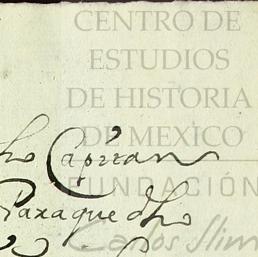 CENTRO DE
ESTUDIOS
DE HISTORIA
DE MEXICO
FUNDACIÓN
Carlos Slim
dho Capitan
Para que dho